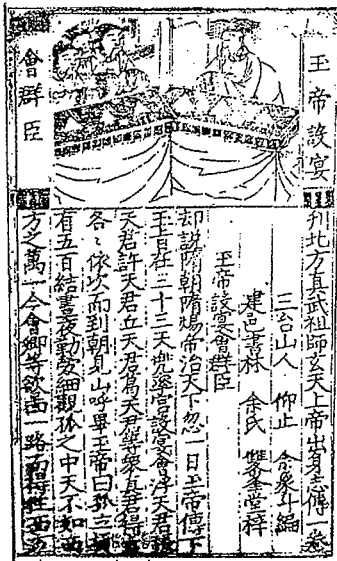 玉帝設宴
會群臣
刋北方真武祖師玄天上帝出身志傳一卷
三台山人 仰止 余象斗編
建邑書林 余氏 雙峯堂梓
玉帝設宴會群臣
却說隋朝隋煬帝治天下忽一日玉帝傳下
玉旨在三十三天兠率宮設宴會
天君許天君立天君
各〻依次而到朝見山呼畢玉帝曰孤立
有五百結晝夜勤勞細觀孤之中天不如西
方之萬一今會卿等欲